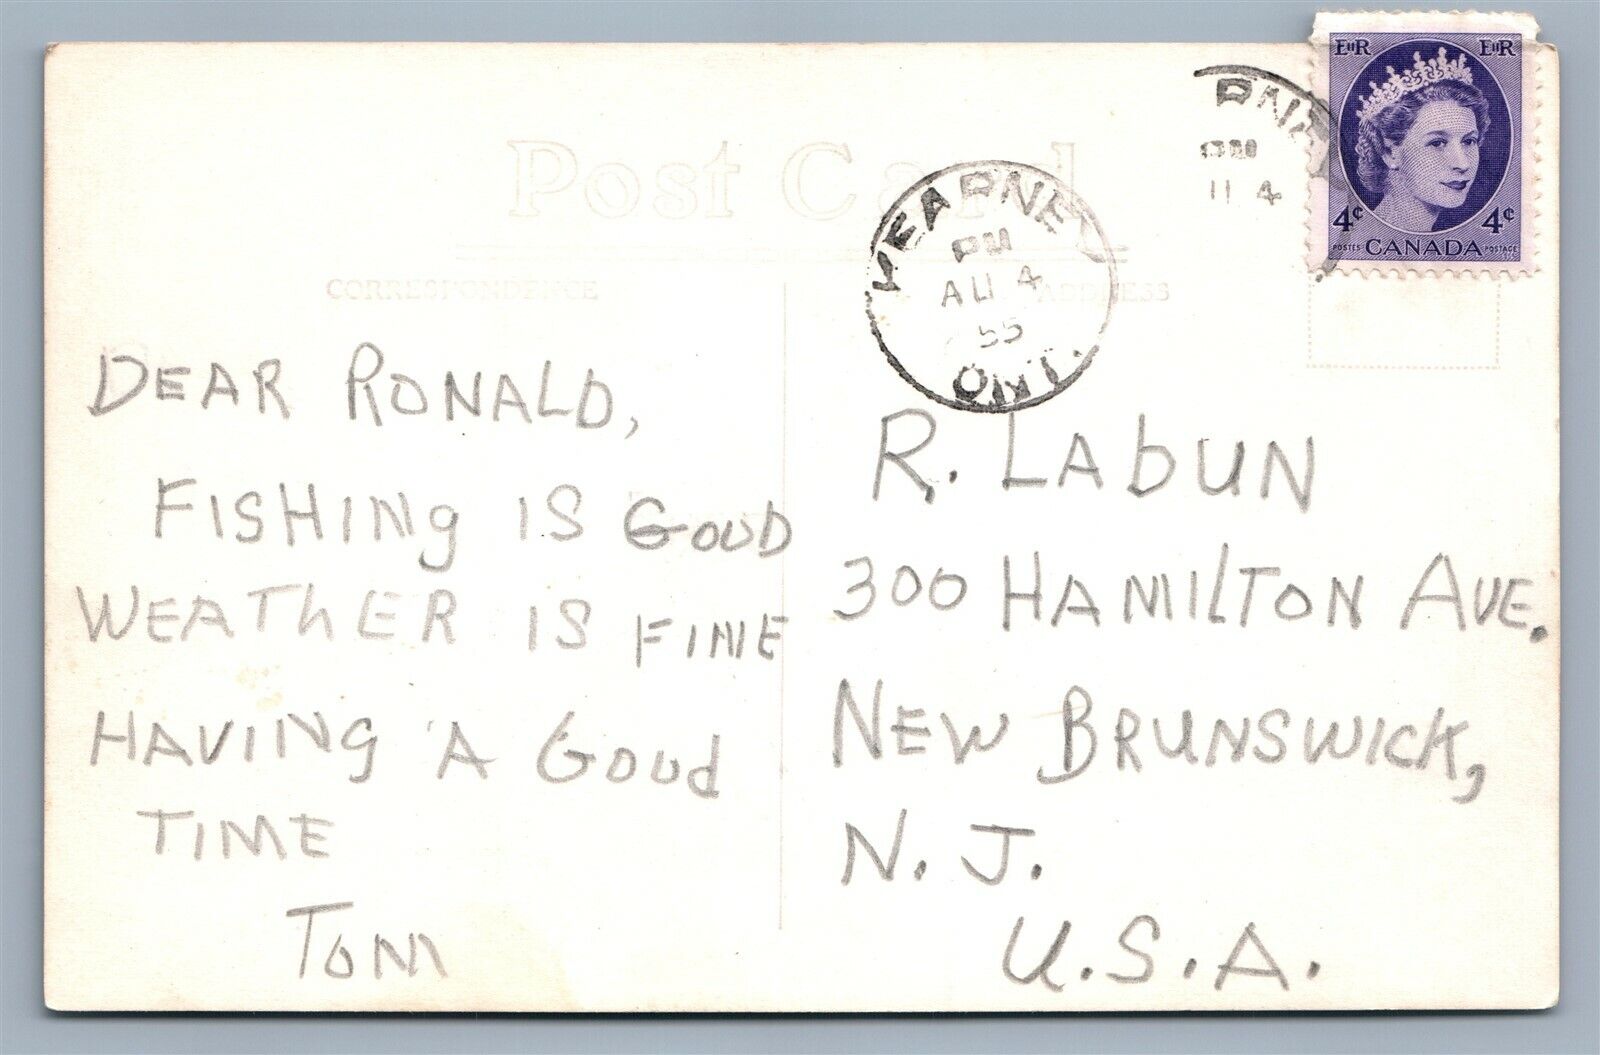 Post Card
CORRESPONDENCE
ADDRESS
KEARNEY
PM
AU 4
55
ONT.
PM
U 4
EIIR EIIR
4¢ 4¢
POSTES CANADA POSTAGE
DEAR RONALD,
FISHINg IS GOOD
WEAThER IS FINE
HAVINg A GOOd
TIME
TOM
R. LAbUN
300 HAMILTON AVE.
NEW BRUNSWICK,
N. J.
U.S.A.